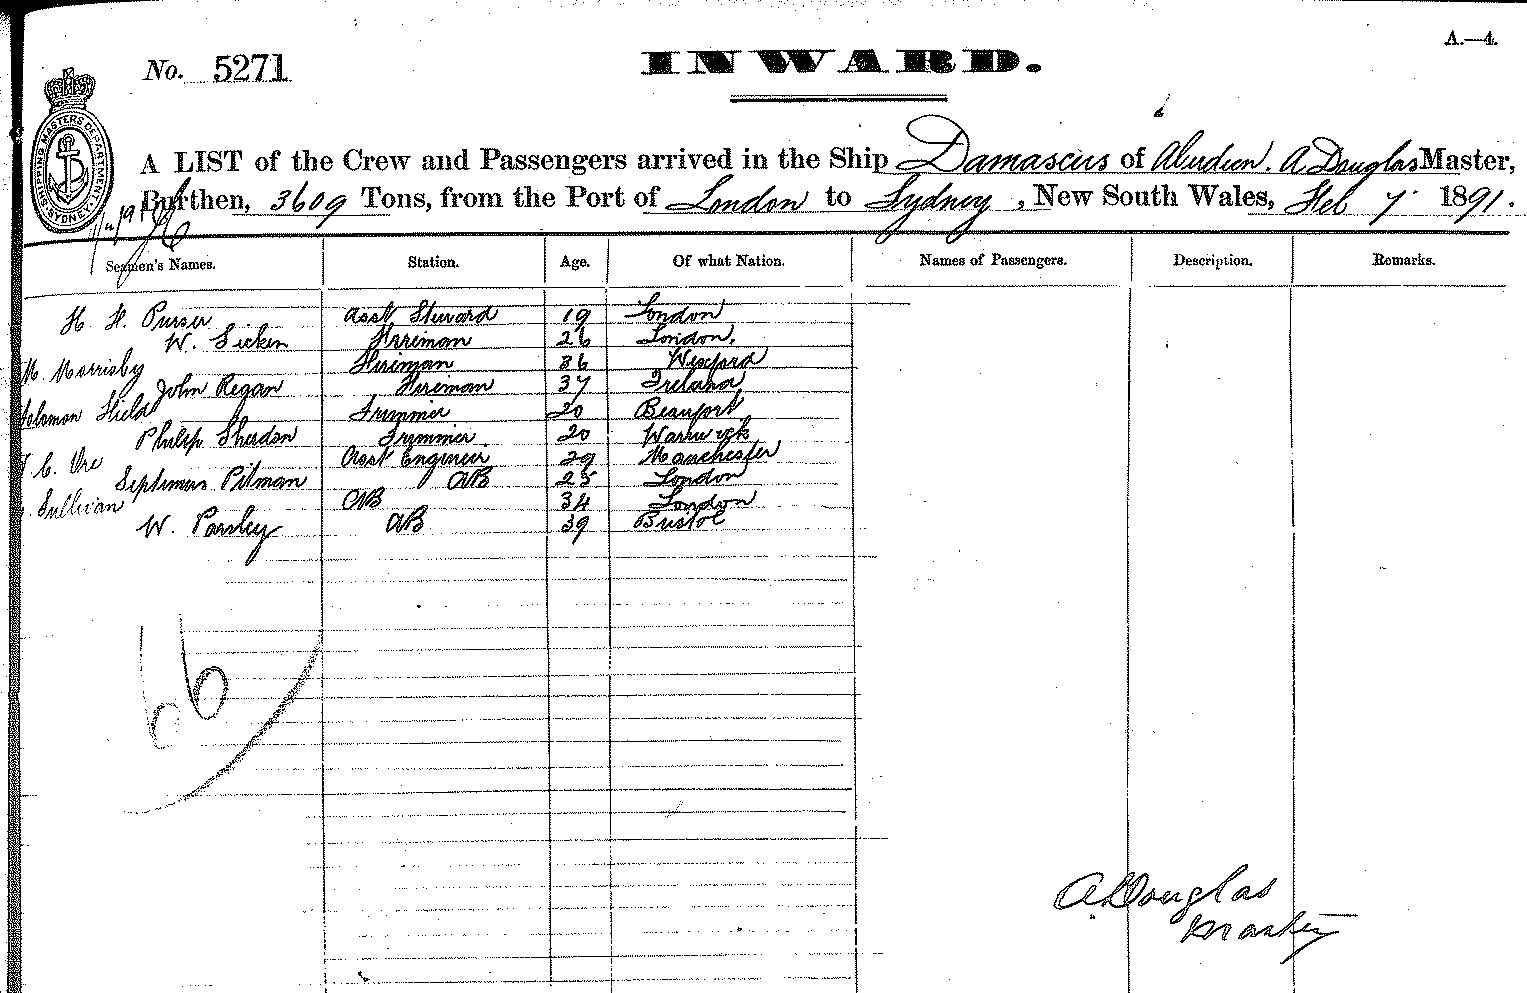 A.—4.
No. 5271
INWARD.
SHIPPING MASTERS DEPARTMENT. SYDNEY
A LIST of the Crew and Passengers arrived in the Ship Damascus of Aberdeen. A Douglas Master,
Burthen, 3609 Tons, from the Port of London to Sydney, New South Wales, Feb 7 1891.
Seamen's Names. Station. Age. Of what Nation. Names of Passengers. Description. Remarks.
H. H. Purser Asst Steward 19 London
W. Fireman 26 London.
M. Morrisby Fireman 36 Wexford
John Regan Fireman 37 Ireland
Solomon Field Trimmer 20 Beaufort
Philip Sheridan Trimmer 20 Warwick
C. Ure Asst Engineer 29 Manchester
Septimus Pitman AB 25 London
Sullivan AB 34 London
W. Parsley AB 39 Bristol
66
A Douglas
Master